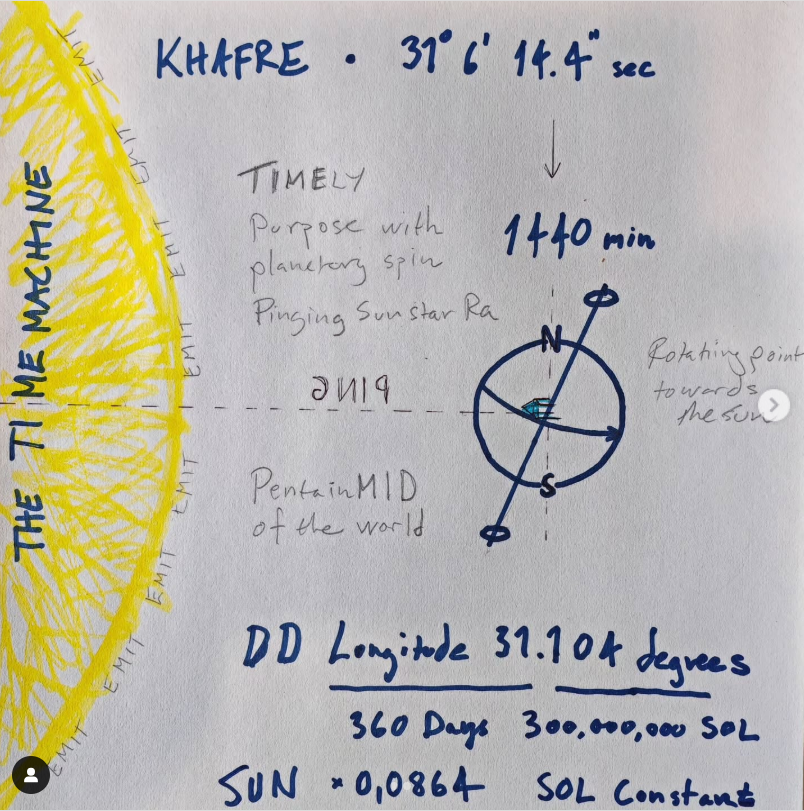 KHAFRE • 31° 6' 14.4" sec
THE TIME MACHINE
EMIT
EMIT
EMIT
EMIT
EMIT
EMIT
EMIT
EMIT
EMIT
TIMELY
Purpose with
planetary spin
Pinging Sunstar Ra
1440 min
N
S
PING
Rotating point
towards
the sun
PentainMID
of the world
DD Longitude 31.104 degrees
360 Days 300,000,000 SOL
SUN × 0,0864 SOL Constant